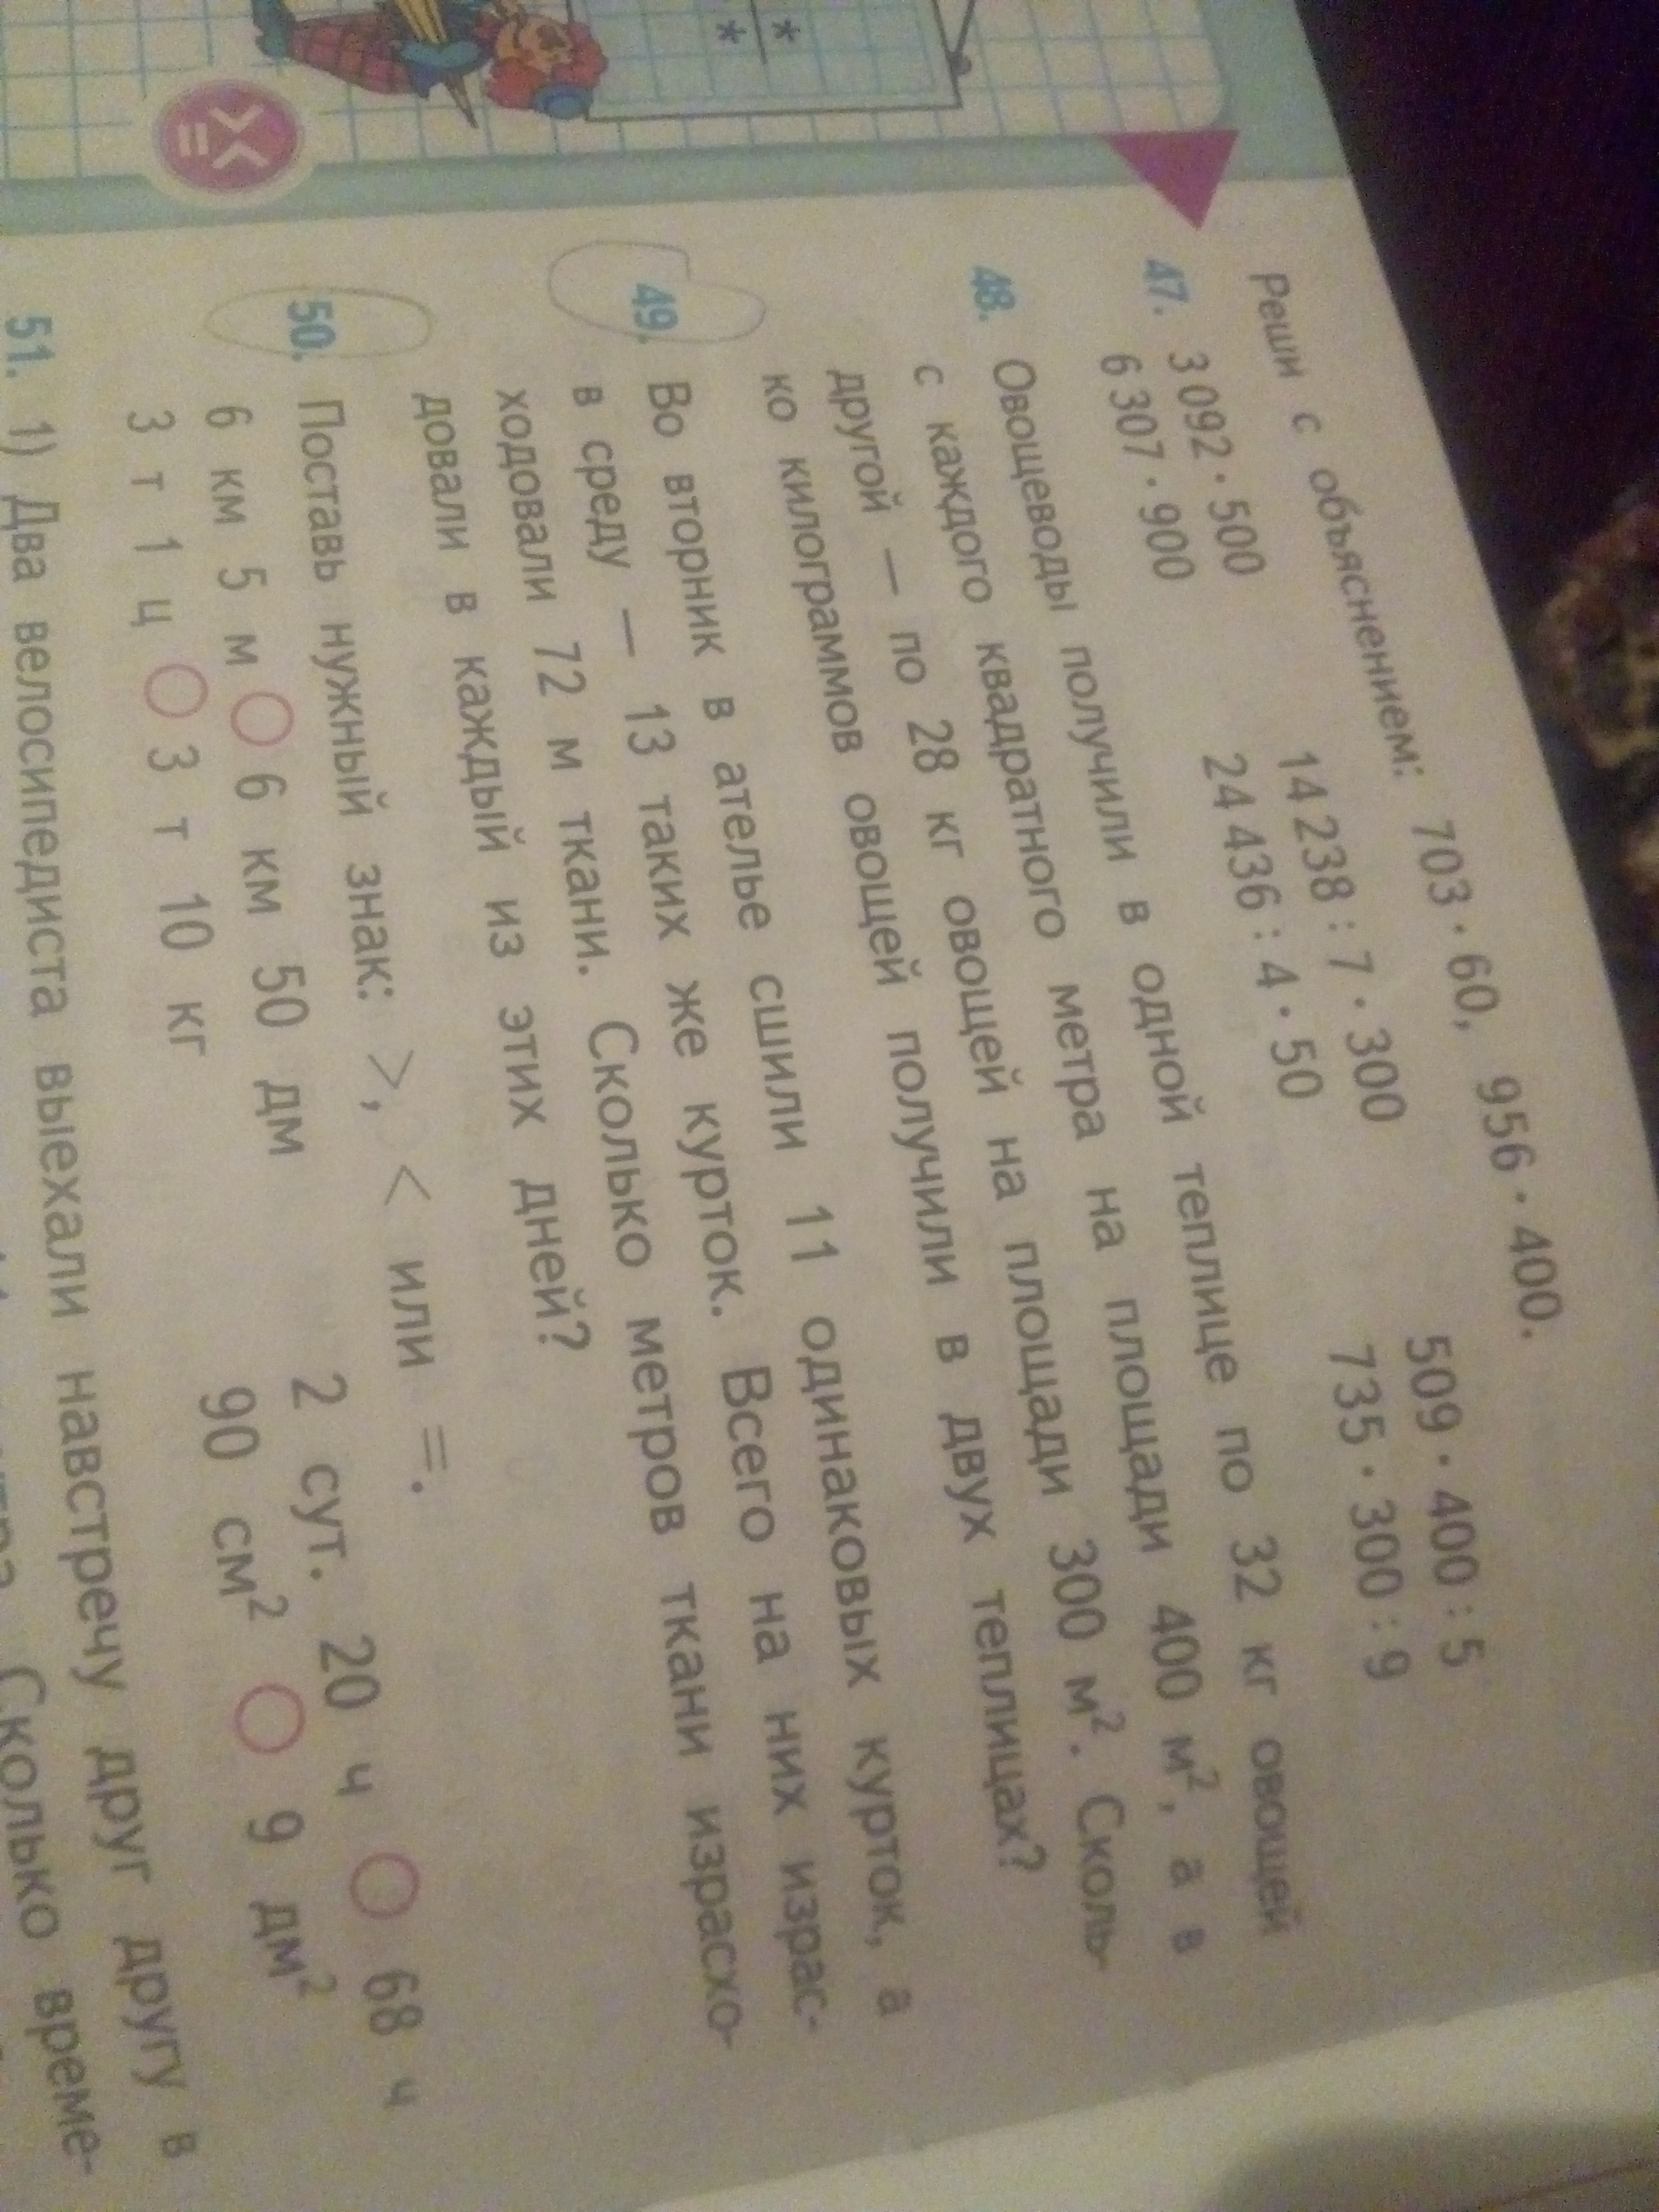 * *
Реши с объяснением: 703 · 60, 956 · 400.
47. 3 092 · 500 14 238 : 7 · 300 509 · 400 : 5
6 307 · 900 24 436 : 4 · 50 735 · 300 : 9
48. Овощеводы получили в одной теплице по 32 кг овощей
с каждого квадратного метра на площади 400 м², а в
другой — по 28 кг овощей на площади 300 м². Сколь-
ко килограммов овощей получили в двух теплицах?
49. Во вторник в ателье сшили 11 одинаковых курток, а
в среду — 13 таких же курток. Всего на них израс-
ходовали 72 м ткани. Сколько метров ткани израсхо-
довали в каждый из этих дней?
> < =
50. Поставь нужный знак: >, < или =.
6 км 5 м ○ 6 км 50 дм 2 сут. 20 ч ○ 68 ч
3 т 1 ц ○ 3 т 10 кг 90 см² ○ 9 дм²
51. 1) Два велосипедиста выехали навстречу друг другу в
Сколько време-